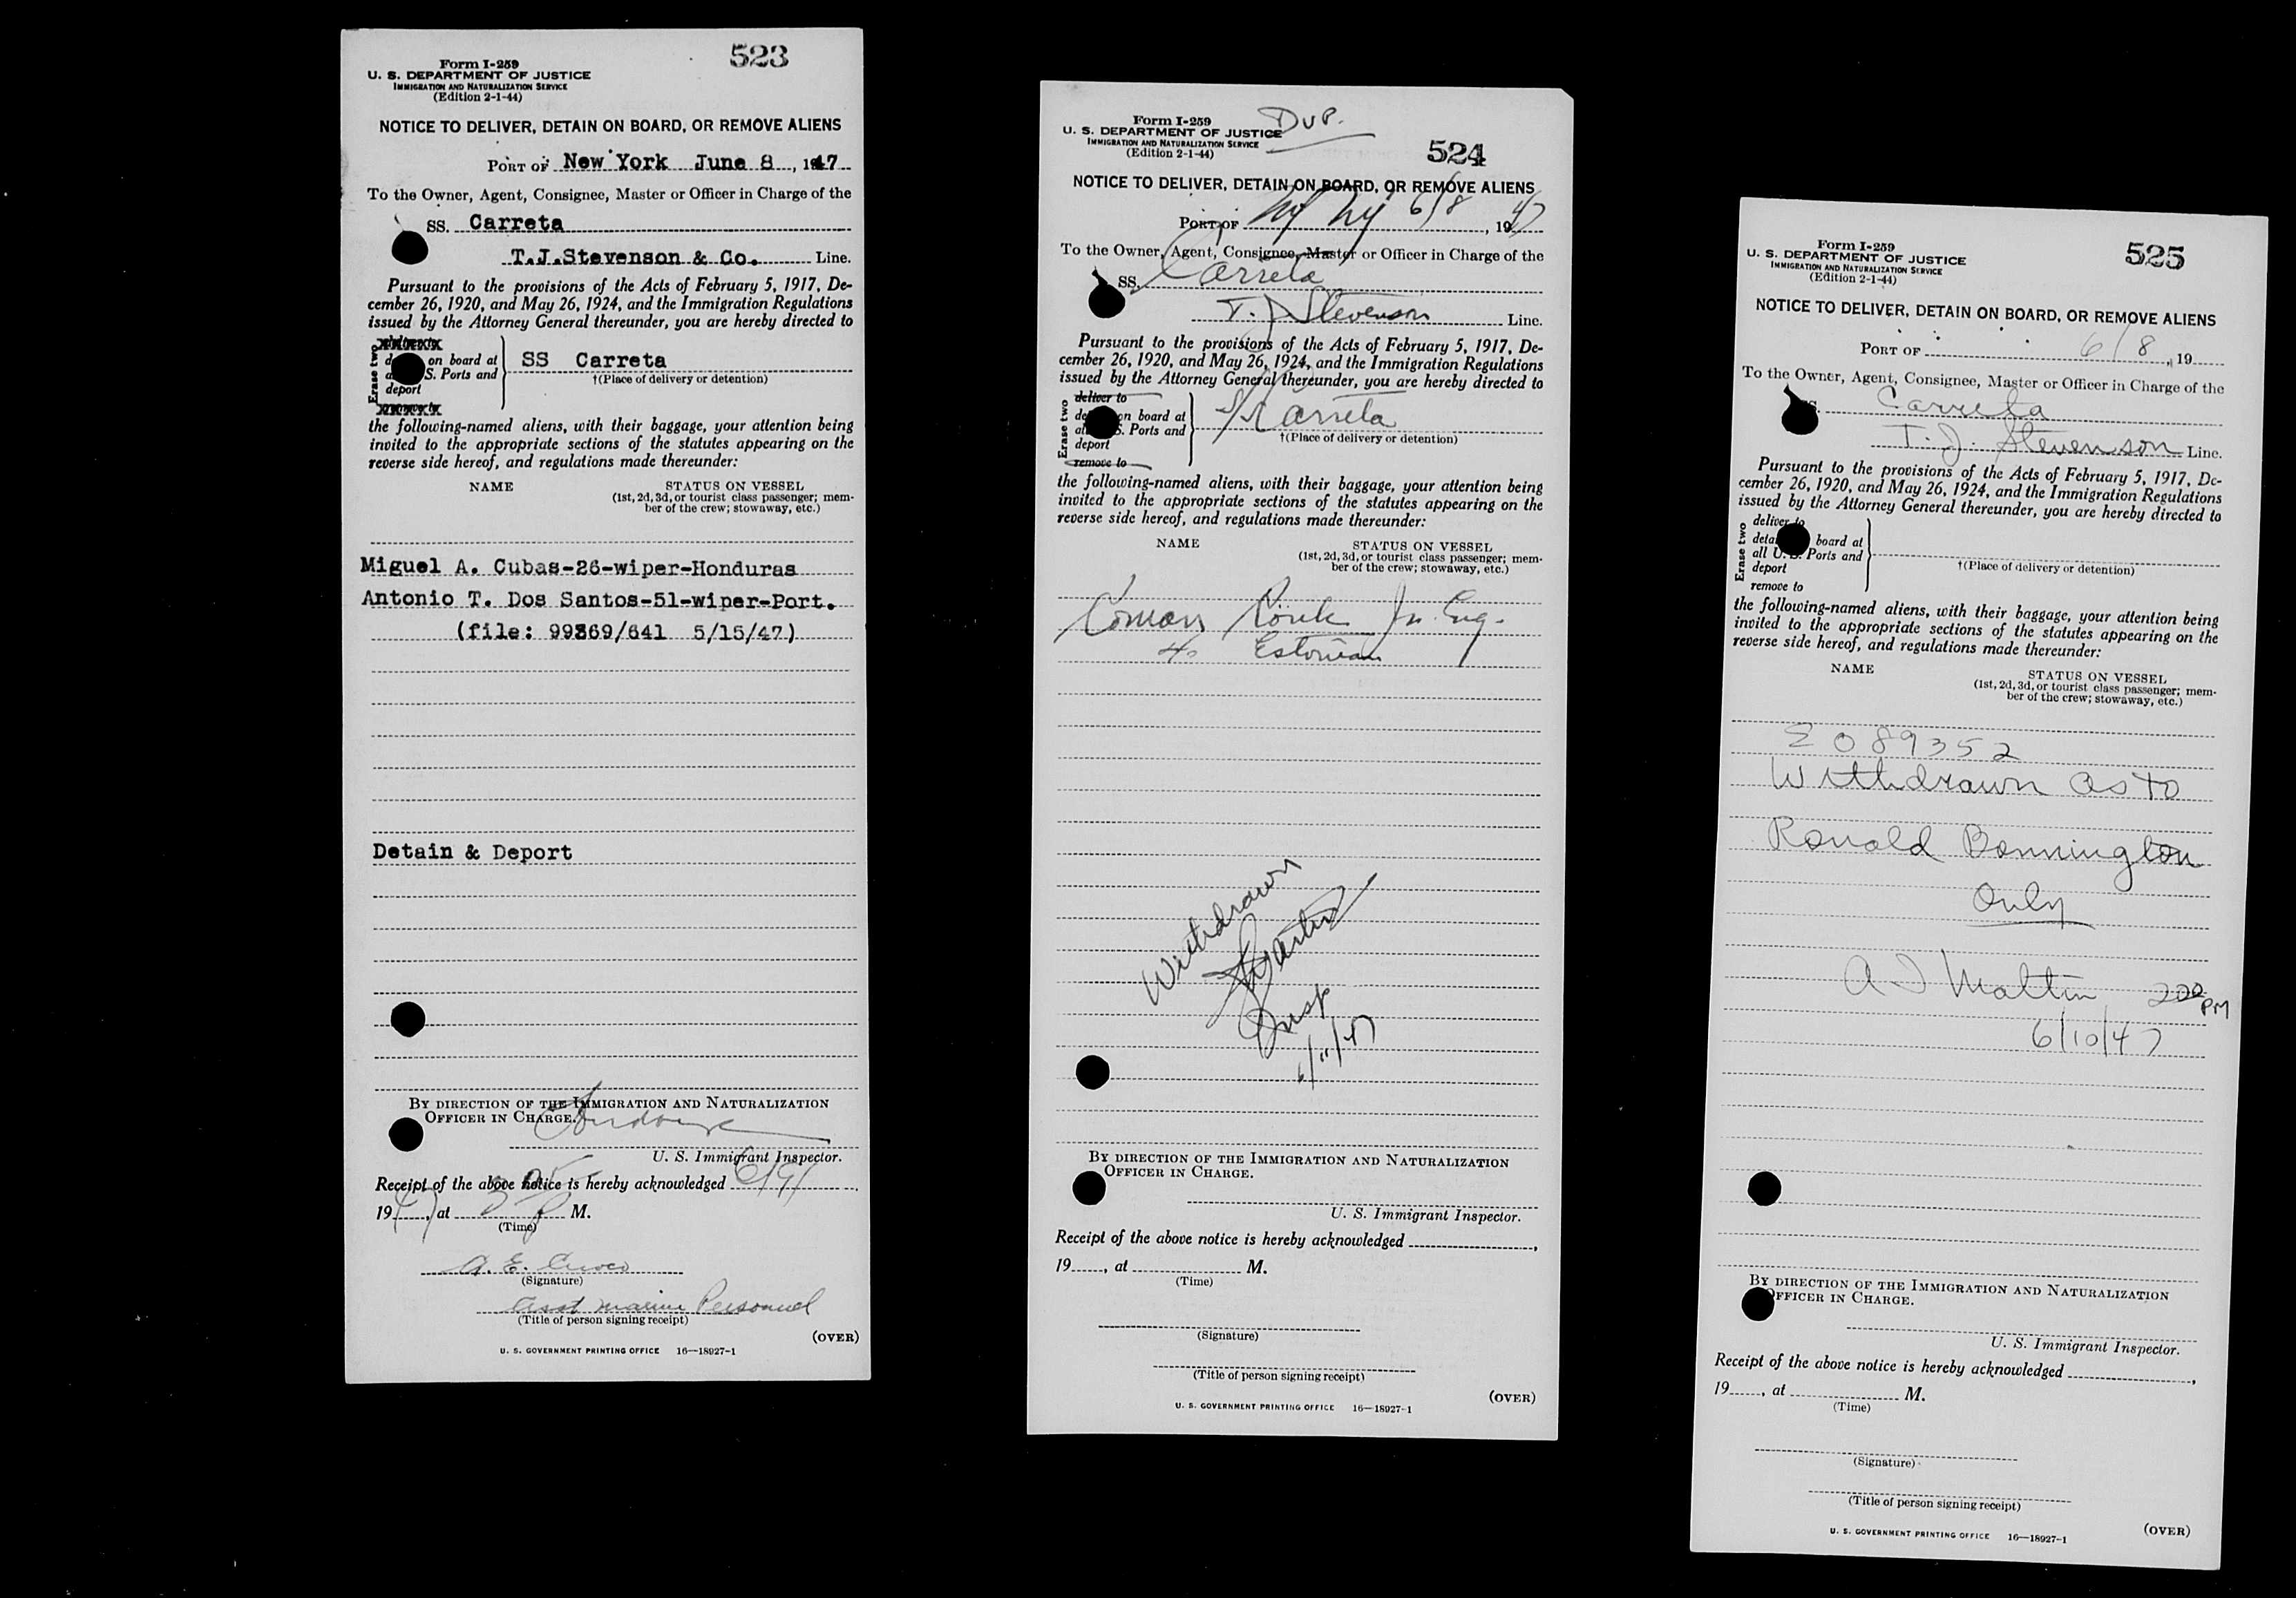 523
Form I-259
U. S. DEPARTMENT OF JUSTICE
IMMIGRATION AND NATURALIZATION SERVICE
(Edition 2-1-44)
NOTICE TO DELIVER, DETAIN ON BOARD, OR REMOVE ALIENS
PORT OF New York June 8, 1947
To the Owner, Agent, Consignee, Master or Officer in Charge of the
SS. Carreta
T.J.Stevenson & Co. Line.
Pursuant to the provisions of the Acts of February 5, 1917, De-
cember 26, 1920, and May 26, 1924, and the Immigration Regulations
issued by the Attorney General thereunder, you are hereby directed to
Erase two
on board at
S. Ports and
deport
SS Carreta
†(Place of delivery or detention)
the following-named aliens, with their baggage, your attention being
invited to the appropriate sections of the statutes appearing on the
reverse side hereof, and regulations made thereunder:
NAME STATUS ON VESSEL
(1st, 2d, 3d, or tourist class passenger; mem-
ber of the crew; stowaway, etc.)
Miguel A. Cubas-26-wiper-Honduras
Antonio T. Dos Santos-51-wiper-Port.
(file: 99369/641 5/15/47)
Detain & Deport
BY DIRECTION OF THE IMMIGRATION AND NATURALIZATION
OFFICER IN CHARGE.
U. S. Immigrant Inspector.
Receipt of the above notice is hereby acknowledged 6/9/
1947, at P M.
(Time)
A. E.
(Signature)
Asst Marine Personnel
(Title of person signing receipt)
(OVER)
U. S. GOVERNMENT PRINTING OFFICE 16—18927-1
Dup.
524
Form I-259
U. S. DEPARTMENT OF JUSTICE
IMMIGRATION AND NATURALIZATION SERVICE
(Edition 2-1-44)
NOTICE TO DELIVER, DETAIN ON BOARD, OR REMOVE ALIENS
PORT OF NY NY 6/8, 1947
To the Owner, Agent, Consignee, Master or Officer in Charge of the
SS. Carreta
T. J Stevenson Line.
Pursuant to the provisions of the Acts of February 5, 1917, De-
cember 26, 1920, and May 26, 1924, and the Immigration Regulations
issued by the Attorney General thereunder, you are hereby directed to
Erase two
deliver to
on board at
S. Ports and
deport
remove to
S/S Carreta
†(Place of delivery or detention)
the following-named aliens, with their baggage, your attention being
invited to the appropriate sections of the statutes appearing on the
reverse side hereof, and regulations made thereunder:
NAME STATUS ON VESSEL
(1st, 2d, 3d, or tourist class passenger; mem-
ber of the crew; stowaway, etc.)
Jr. Eng.
Estonian
Withdrawn
Insp
6/11/47
BY DIRECTION OF THE IMMIGRATION AND NATURALIZATION
OFFICER IN CHARGE.
U. S. Immigrant Inspector.
Receipt of the above notice is hereby acknowledged
19, at M.
(Time)
(Signature)
(Title of person signing receipt)
(OVER)
U. S. GOVERNMENT PRINTING OFFICE 16—18927-1
525
Form I-259
U. S. DEPARTMENT OF JUSTICE
IMMIGRATION AND NATURALIZATION SERVICE
(Edition 2-1-44)
NOTICE TO DELIVER, DETAIN ON BOARD, OR REMOVE ALIENS
PORT OF 6/8, 19
To the Owner, Agent, Consignee, Master or Officer in Charge of the
Carreta
T. J. Stevenson Line.
Pursuant to the provisions of the Acts of February 5, 1917, De-
cember 26, 1920, and May 26, 1924, and the Immigration Regulations
issued by the Attorney General thereunder, you are hereby directed to
Erase two
deliver to
board at
all U. S. Ports and
deport
remove to
†(Place of delivery or detention)
the following-named aliens, with their baggage, your attention being
invited to the appropriate sections of the statutes appearing on the
reverse side hereof, and regulations made thereunder:
NAME STATUS ON VESSEL
(1st, 2d, 3d, or tourist class passenger; mem-
ber of the crew; stowaway, etc.)
E 089352
Withdrawn as to
Ronald Bonnington
Only
200 PM
6/10/47
BY DIRECTION OF THE IMMIGRATION AND NATURALIZATION
OFFICER IN CHARGE.
U. S. Immigrant Inspector.
Receipt of the above notice is hereby acknowledged
19, at M.
(Time)
(Signature)
(Title of person signing receipt)
(OVER)
U. S. GOVERNMENT PRINTING OFFICE 16—18927-1